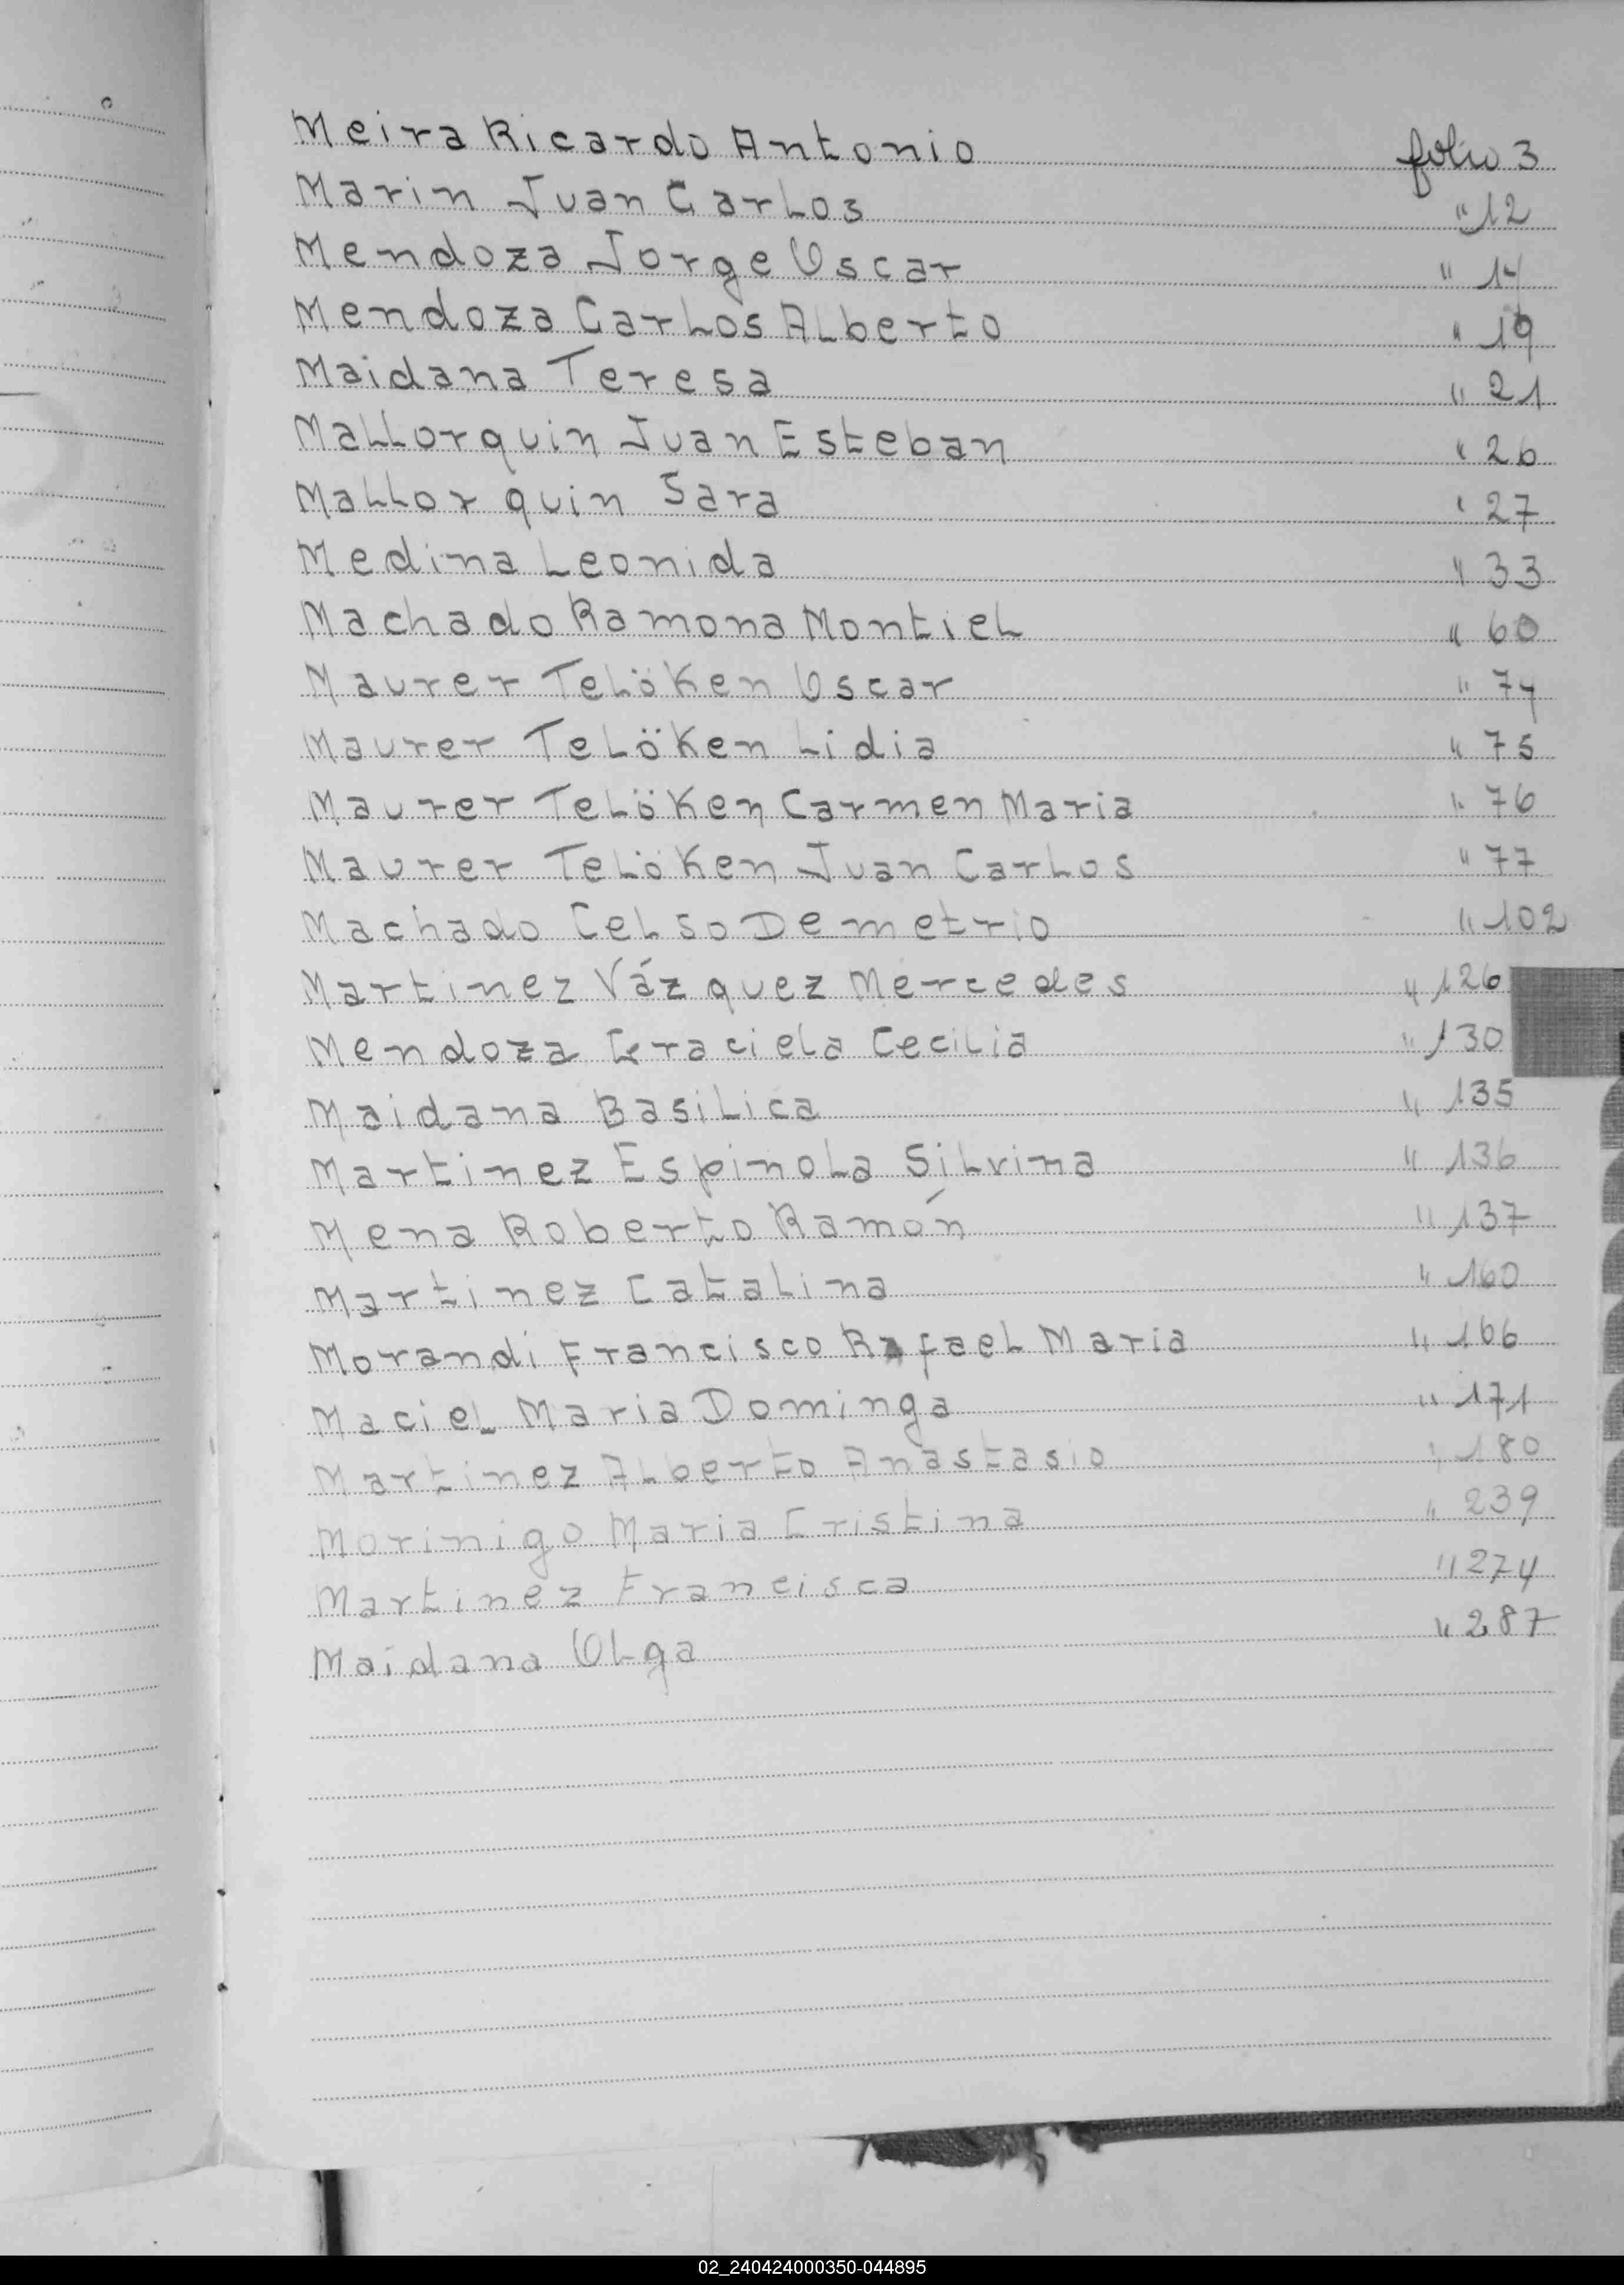 Meira Ricardo Antonio folio 3
Marin Juan Carlos " 12
Mendoza Jorge Oscar " 14
Mendoza Carlos Alberto " 19
Maidana Teresa " 21
Mallorquin Juan Esteban " 26
Mallorquin Sara " 27
Medina Leonida " 33
Machado Ramona Montiel " 60
Maurer Telöken Oscar " 74
Maurer Telöken Lidia " 75
Maurer Telöken Carmen Maria " 76
Maurer Telöken Juan Carlos " 77
Machado Celso Demetrio " 102
Martinez Vázquez Mercedes " 126
Mendoza Graciela Cecilia " 130
Maidana Basilica " 135
Martinez Espinola Silvina " 136
Mena Roberto Ramón " 137
Martinez Catalina " 160
Morandi Francisco Rafael Maria " 166
Maciel Maria Dominga " 171
Martinez Alberto Anastasio " 180
Morinigo Maria Cristina " 239
Martinez Francisca " 274
Maidana Olga " 287
02_240424000350-044895